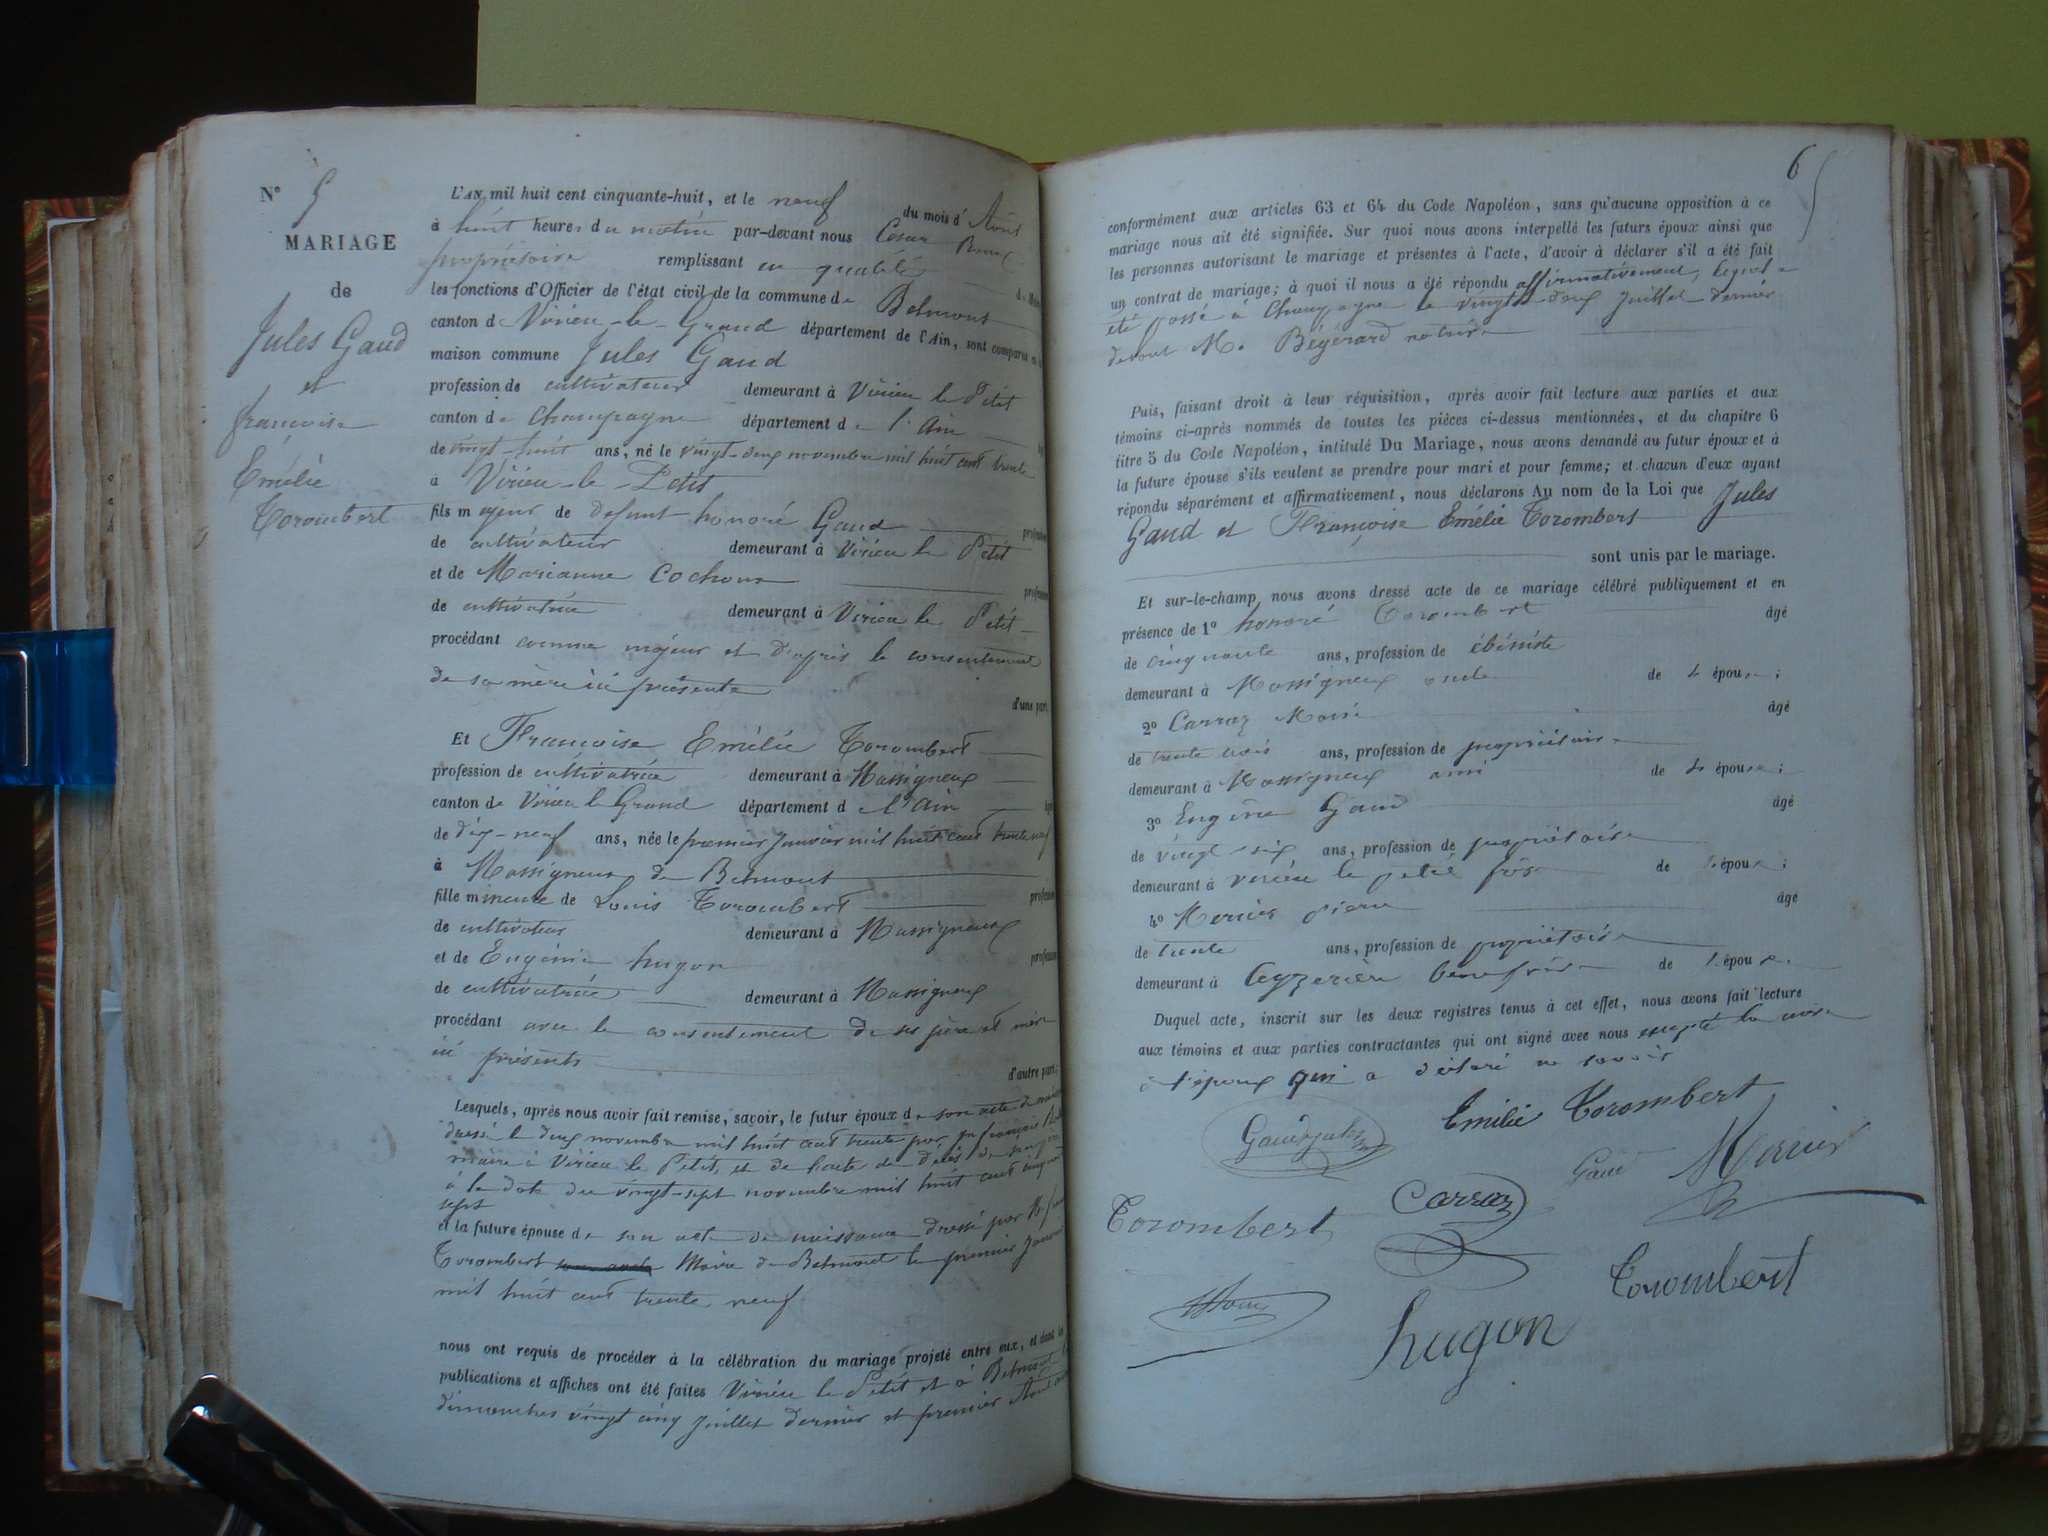 N° 5
MARIAGE
de
Jules Gaud
et
françoise
Emélie
Torombert
L'AN mil huit cent cinquante-huit, et le neuf du mois d'Août
à huit heures du matin par-devant nous César
propriétaire remplissant en qualité de
les fonctions d'Officier de l'état civil de la commune de Belmont
canton de Virieu-le-Grand département de l'Ain, sont comparus
maison commune Jules Gaud
profession de cultivateur demeurant à Virieu le Petit
canton de Champagne département de l'Ain
de vingt-huit ans, né le vingt-deux novembre mil huit cent trente
à Virieu-le-Petit
fils majeur de défunt honoré Gaud
de cultivateur demeurant à Virieu le Petit
et de Marianne Cochon
de cultivatrice demeurant à Virieu le Petit
procédant comme majeur et d'après le consentement
de sa mère ici présente
d'une part,
Et Françoise Emélie Torombert
profession de cultivatrice demeurant à Massigneux
canton de Virieu le Grand département de l'Ain
de dix-neuf ans, née le premier janvier mil huit cent trente neuf
à Massigneux de Belmont
fille mineure de Louis Torombert profession
de cultivateur demeurant à Massigneux
et de Eugénie hugon profession
de cultivatrice demeurant à Massigneux
procédant avec le consentement de ses père et mère
ici présents
d'autre part;
Lesquels, après nous avoir fait remise, savoir, le futur époux de son acte de
dressé le deux novembre mil huit cent trente par
maire à Virieu le Petit, et de l'acte de décès de son père
à la date du vingt-sept novembre mil huit cent cinquante
sept
et la future épouse de son acte de naissance dressé par
Torombert Maire de Belmont le premier Janvier
mil huit cent trente neuf
nous ont requis de procéder à la célébration du mariage projeté entre eux, et dont les
publications et affiches ont été faites Virieu le Petit et à Belmont
dimanches vingt cinq juillet dernier et premier Août
6
conformément aux articles 63 et 64 du Code Napoléon, sans qu'aucune opposition à ce
mariage nous ait été signifiée. Sur quoi nous avons interpellé les futurs époux ainsi que
les personnes autorisant le mariage et présentes à l'acte, d'avoir à déclarer s'il a été fait
un contrat de mariage; à quoi il nous a été répondu affirmativement, lequel a
été passé à Champagne le vingt-deux juillet dernier
devant M. Bégérard notaire
Puis, faisant droit à leur réquisition, après avoir fait lecture aux parties et aux
témoins ci-après nommés de toutes les pièces ci-dessus mentionnées, et du chapitre 6
titre 5 du Code Napoléon, intitulé Du Mariage, nous avons demandé au futur époux et à
la future épouse s'ils veulent se prendre pour mari et pour femme; et chacun d'eux ayant
répondu séparément et affirmativement, nous déclarons Au nom de la Loi que Jules
Gaud et Françoise Emélie Torombert
sont unis par le mariage.
Et sur-le-champ nous avons dressé acte de ce mariage célébré publiquement et en
présence de 1° honoré Torombert âgé
de cinquante ans, profession de ébéniste
demeurant à Massigneux oncle de l'épouse;
2° Carraz âgé
de trente trois ans, profession de propriétaire
demeurant à Massigneux ami de l'épouse;
3° Eugène Gaud âgé
de vingt-six ans, profession de propriétaire
demeurant à virieu le petit de l'épou;
4° Mercier pierre âgé
de trente ans, profession de propriétaire
demeurant à Ceyzerieu beau frère de l'épou
Duquel acte, inscrit sur les deux registres tenus à cet effet, nous avons fait lecture
aux témoins et aux parties contractantes qui ont signé avec nous excepté la mère
à l'époux qui a déclaré ne savoir
Gaud jules
Emélie Torombert
Gaud
Mercier
Torombert
Carraz
Torombert
hugon